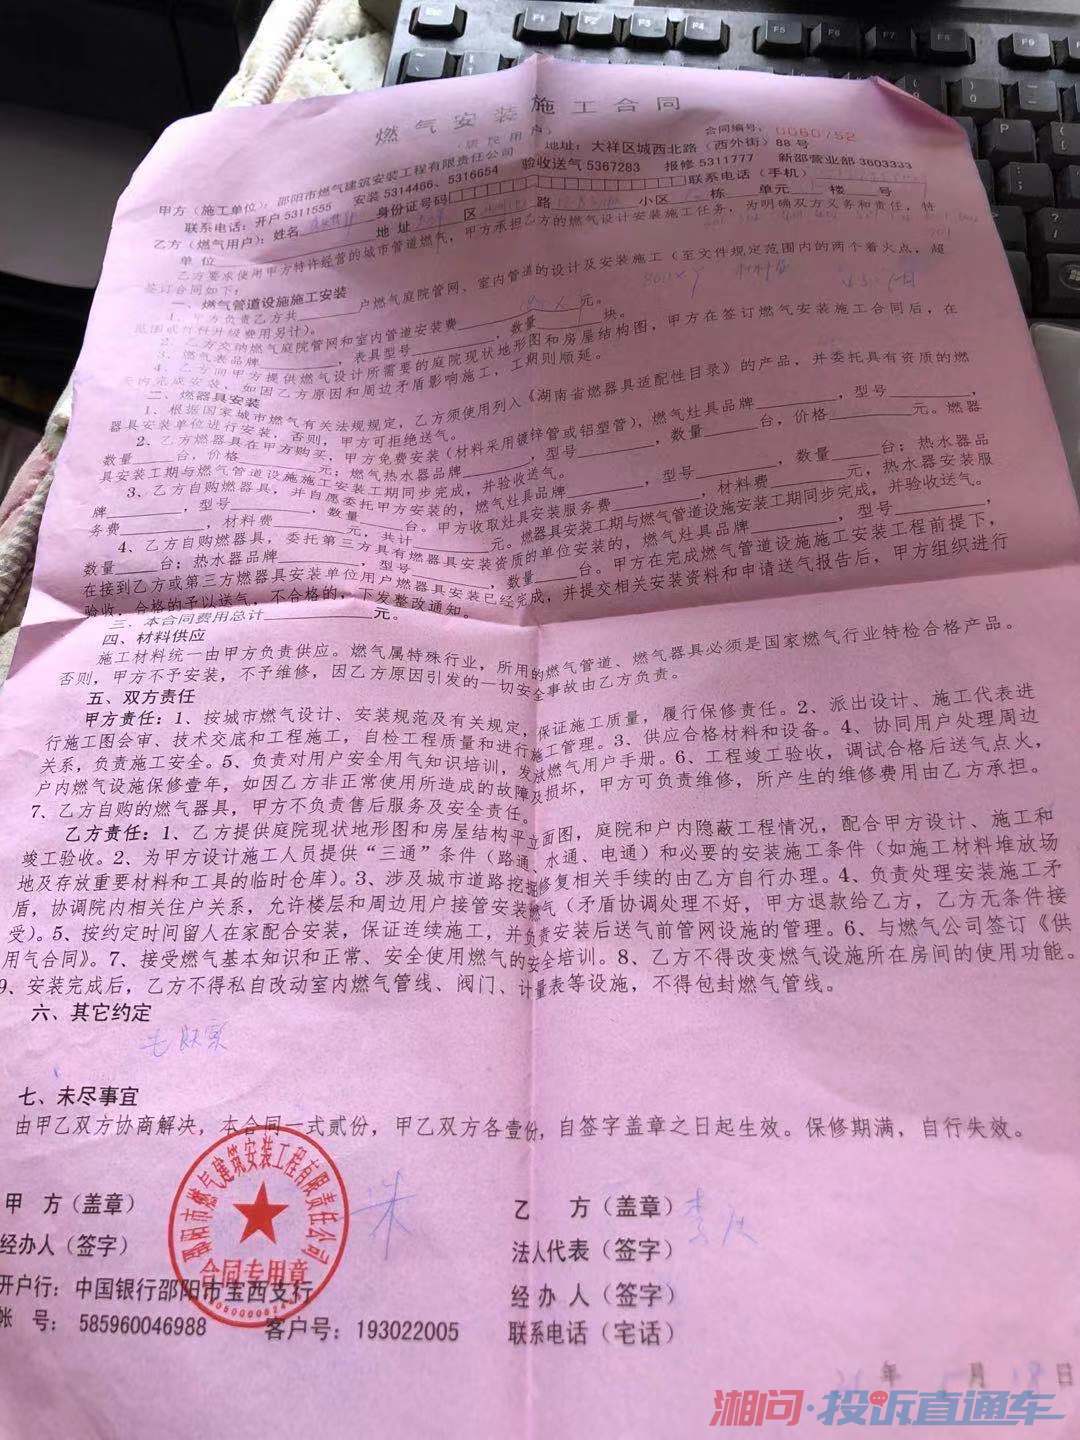 燃气安装施工合同
（居民用户）
合同编号：0060752
甲方（施工单位）：邵阳市燃气建筑安装工程有限责任公司 地址：大祥区城西北路（西外街）88号
联系电话：开户5311555 安装5314466、5316654 验收送气5367283 报修5311777 新邵营业部3603333
乙方（燃气用户）：姓名 身份证号码 联系电话（手机）
单位 地址 区 路 小区 栋 单元 楼 号
乙方要求使用甲方特许经营的城市管道燃气，甲方承担乙方的燃气设计安装施工任务，为明确双方义务和责任，特
签订合同如下：
一、燃气管道设施施工安装
1、甲方负责乙方共 户燃气庭院管网、室内管道的设计及安装施工（至文件规定范围内的两个着火点，超
范围或材料升级费用另计）。
2、乙方交纳燃气庭院管网和室内管道安装费 元。
3、燃气表品牌 ，表具型号 ，数量 块。
4、乙方向甲方提供燃气设计所需要的庭院现状地形图和房屋结构图，甲方在签订燃气安装施工合同后，在
天内完成安装，如因乙方原因和周边矛盾影响施工，工期则顺延。
二、燃器具安装
1、根据国家城市燃气有关法规规定，乙方须使用列入《湖南省燃器具适配性目录》的产品，并委托具有资质的燃
器具安装单位进行安装，否则，甲方可拒绝送气。
2、乙方燃器具在甲方购买，甲方免费安装（材料采用镀锌管或铝塑管），燃气灶具品牌 ，型号 ，
数量 台，价格 元；燃气热水器品牌 ，型号 ，数量 台，价格 元。燃器
具安装工期与燃气管道设施施工安装工期同步完成，并验收送气。
3、乙方自购燃器具，并自愿委托甲方安装的，燃气灶具品牌 ，型号 ，数量 台；热水器品
牌 ，型号 ，数量 台。甲方收取灶具安装服务费 ，材料费 元，热水器安装服
务费 ，材料费 元，共计 元。燃器具安装工期与燃气管道设施安装工期同步完成，并验收送气。
4、乙方自购燃器具，委托第三方具有燃器具安装资质的单位安装的，燃气灶具品牌 ，型号 ，
数量 台；热水器品牌 ，型号 ，数量 台。甲方在完成燃气管道设施施工安装工程前提下，
在接到乙方或第三方燃器具安装单位用户燃器具安装已经完成，并提交相关安装资料和申请送气报告后，甲方组织进行
验收，合格的予以送气，不合格的，下发整改通知。
三、本合同费用总计 元。
四、材料供应
施工材料统一由甲方负责供应。燃气属特殊行业，所用的燃气管道、燃气器具必须是国家燃气行业特检合格产品。
否则，甲方不予安装，不予维修，因乙方原因引发的一切安全事故由乙方负责。
五、双方责任
甲方责任：1、按城市燃气设计、安装规范及有关规定，保证施工质量，履行保修责任。2、派出设计、施工代表进
行施工图会审、技术交底和工程施工，自检工程质量和进行施工管理。3、供应合格材料和设备。4、协同用户处理周边
关系，负责施工安全。5、负责对用户安全用气知识培训，发放燃气用户手册。6、工程竣工验收，调试合格后送气点火，
户内燃气设施保修壹年，如因乙方非正常使用所造成的故障及损坏，甲方可负责维修，所产生的维修费用由乙方承担。
7、乙方自购的燃气器具，甲方不负责售后服务及安全责任。
乙方责任：1、乙方提供庭院现状地形图和房屋结构平立面图，庭院和户内隐蔽工程情况，配合甲方设计、施工和
竣工验收。2、为甲方设计施工人员提供“三通”条件（路通、水通、电通）和必要的安装施工条件（如施工材料堆放场
地及存放重要材料和工具的临时仓库）。3、涉及城市道路挖掘修复相关手续的由乙方自行办理。4、负责处理安装施工矛
盾，协调院内相关住户关系，允许楼层和周边用户接管安装燃气（矛盾协调处理不好，甲方退款给乙方，乙方无条件接
受）。5、按约定时间留人在家配合安装，保证连续施工，并负责安装后送气前管网设施的管理。6、与燃气公司签订《供
用气合同》。7、接受燃气基本知识和正常、安全使用燃气的安全培训。8、乙方不得改变燃气设施所在房间的使用功能。
9、安装完成后，乙方不得私自改动室内燃气管线、阀门、计量表等设施，不得包封燃气管线。
六、其它约定
七、未尽事宜
由甲乙双方协商解决，本合同一式贰份，甲乙双方各壹份，自签字盖章之日起生效。保修期满，自行失效。
甲 方（盖章） 朱
乙 方（盖章）
经办人（签字）
法人代表（签字）
开户行：中国银行邵阳市宝西支行
经 办 人（签字）
帐 号：585960046988 客户号：193022005
联系电话（宅话）
年 月 18日
邵阳市燃气建筑安装工程有限责任公司
合同专用章
湘问·投诉直通车
F1 F2 F3 F4 F5 F6 F7 F8 F9